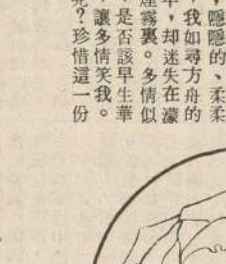 ，隱隱的、柔柔
，我如尋方舟的
年，却迷失在濛
煙霧裏。多情似
是否該早生華
，讓多情笑我。
？珍惜這一份